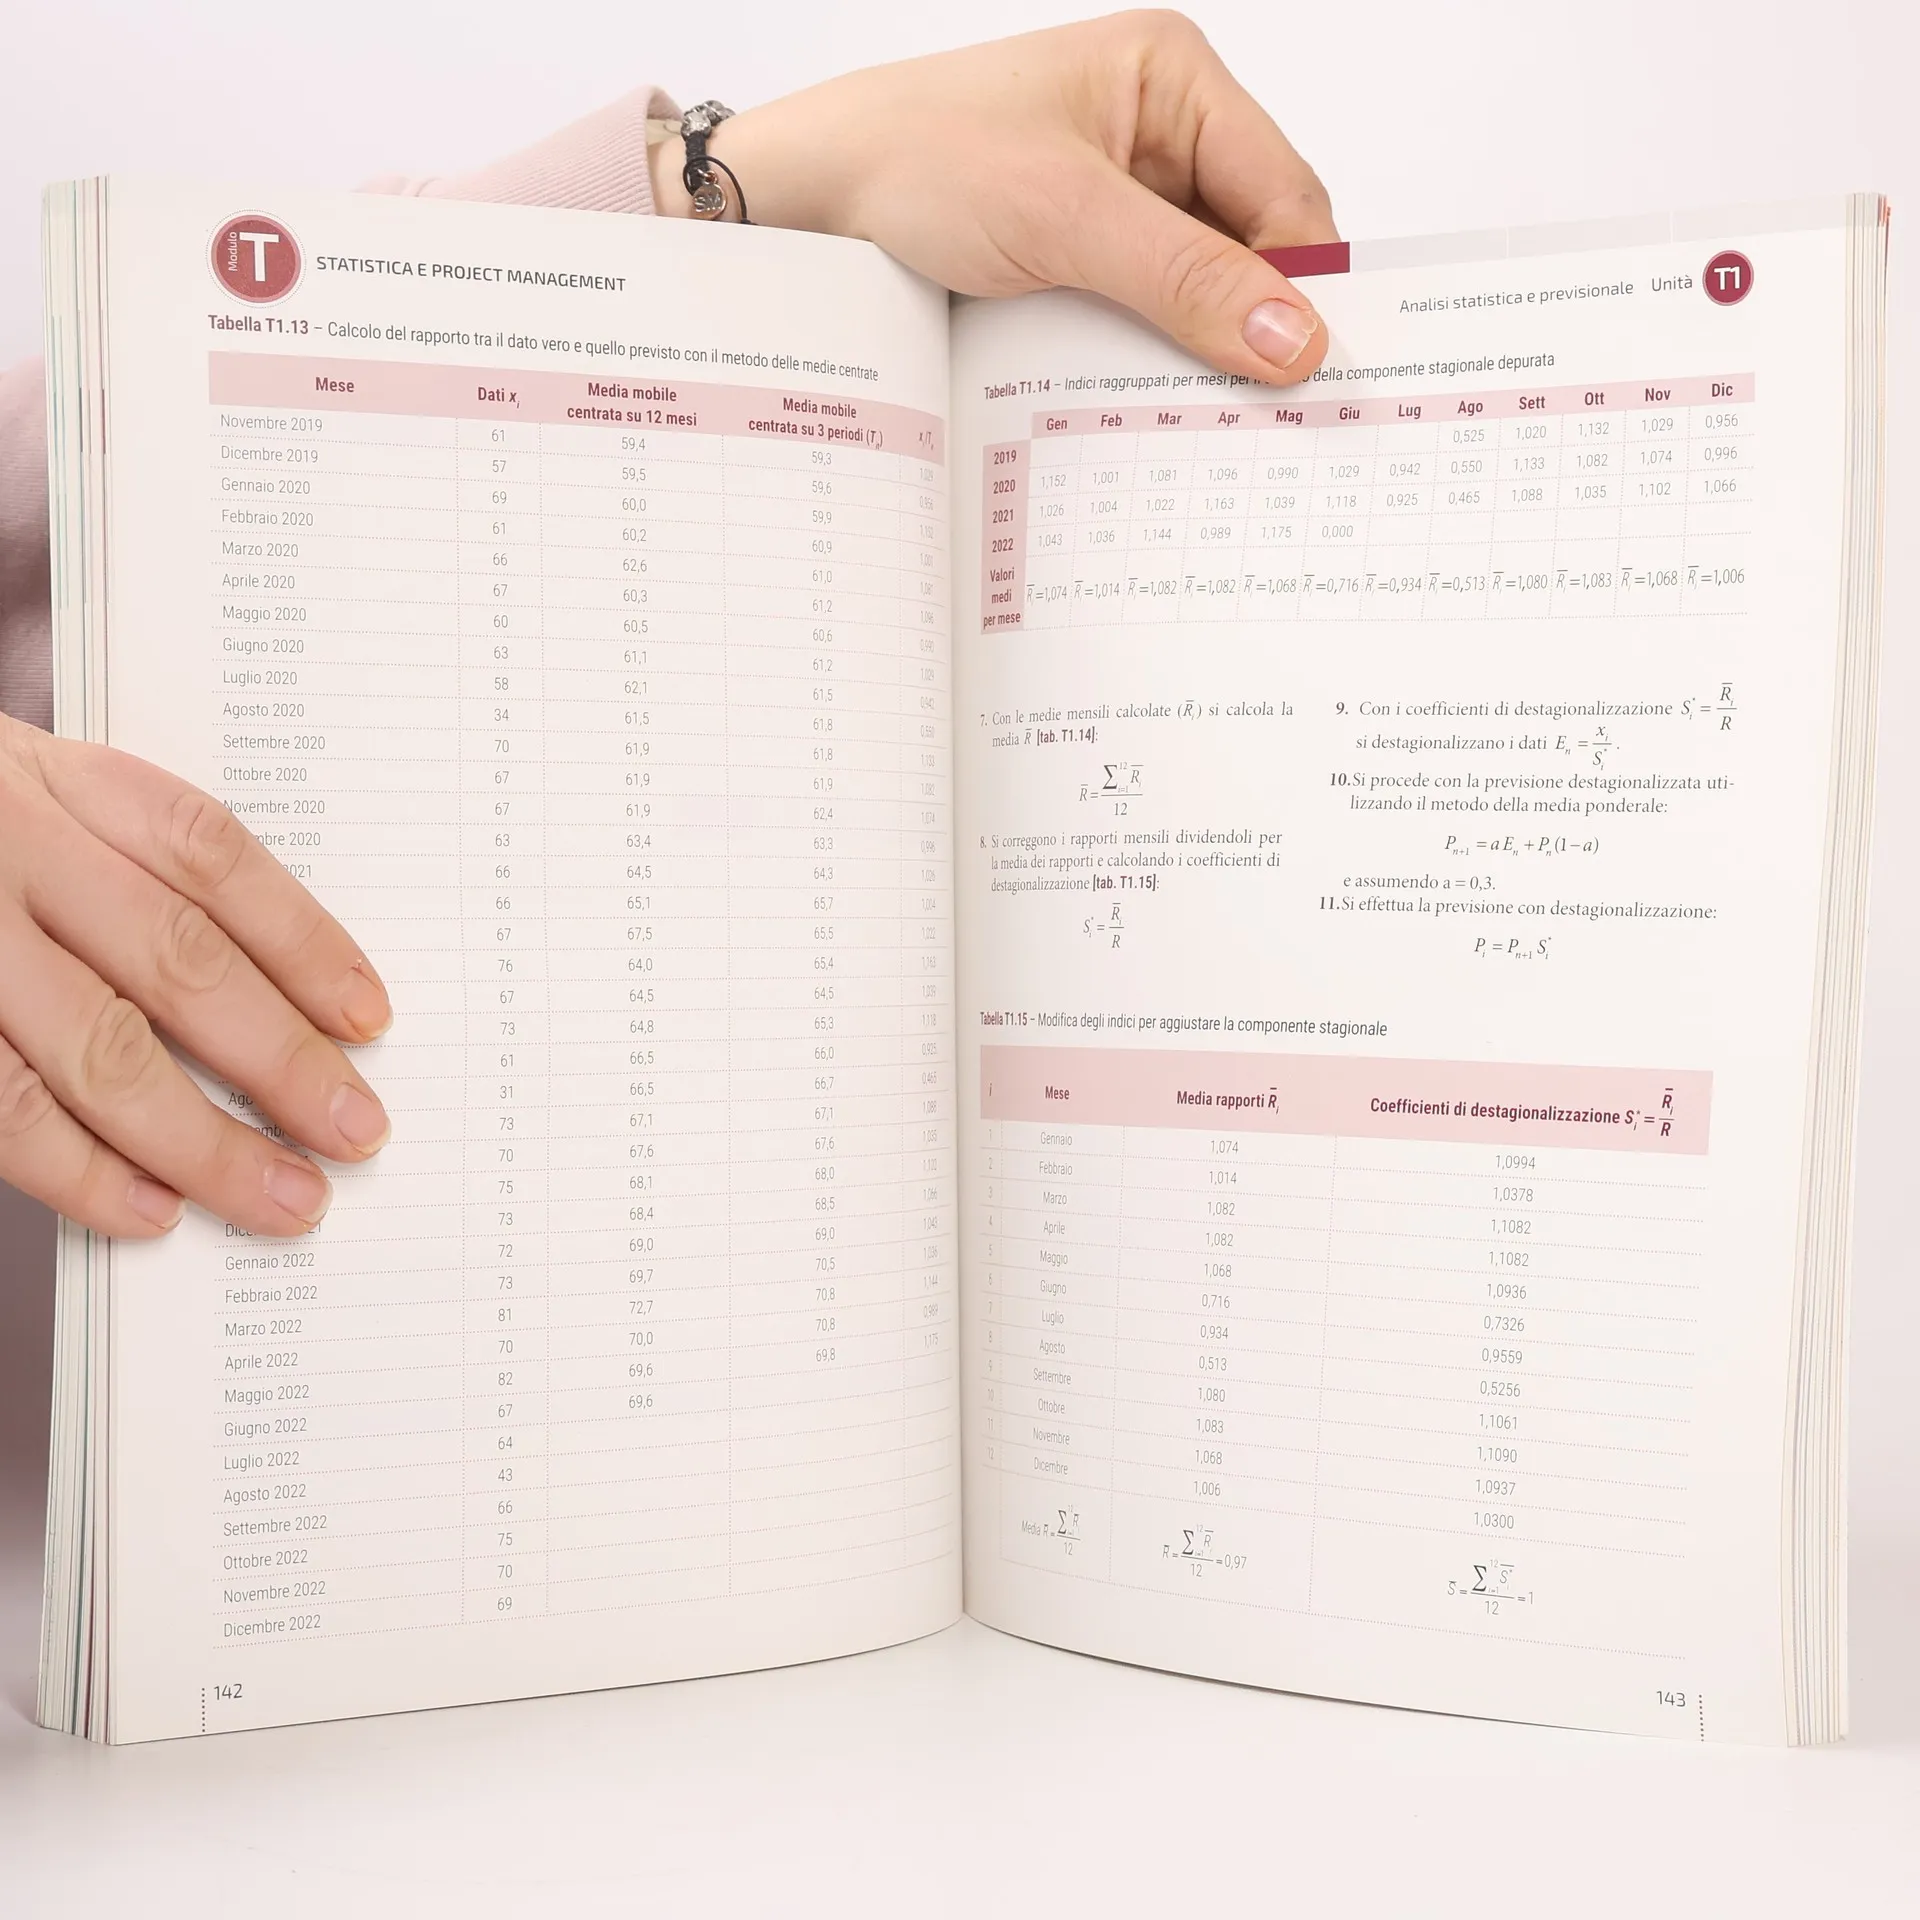 Modulo T STATISTICA E PROJECT MANAGEMENT
Tabella T1.13 – Calcolo del rapporto tra il dato vero e quello previsto con il metodo delle medie centrate
Mese Dati xi Media mobile centrata su 12 mesi Media mobile centrata su 3 periodi (Tn) xi/Tn
Novembre 2019 61 59,4 59,3 1,029
Dicembre 2019 57 59,5 59,6 0,956
Gennaio 2020 69 60,0 59,9 1,152
Febbraio 2020 61 60,2 60,9 1,001
Marzo 2020 66 62,6 61,0 1,081
Aprile 2020 67 60,3 61,2 1,096
Maggio 2020 60 60,5 60,6 0,990
Giugno 2020 63 61,1 61,2 1,029
Luglio 2020 58 62,1 61,5 0,942
Agosto 2020 34 61,5 61,8 0,550
Settembre 2020 70 61,9 61,8 1,133
Ottobre 2020 67 61,9 61,9 1,082
Novembre 2020 67 61,9 62,4 1,074
mbre 2020 63 63,4 63,3 0,996
2021 66 64,5 64,3 1,026
66 65,1 65,7 1,004
67 67,5 65,5 1,022
76 64,0 65,4 1,163
67 64,5 64,5 1,039
73 64,8 65,3 1,118
61 66,5 66,0 0,925
Ago 31 66,5 66,7 0,465
emb 73 67,1 67,1 1,088
70 67,6 67,6 1,035
75 68,1 68,0 1,102
Dice 73 68,4 68,5 1,066
Gennaio 2022 72 69,0 69,0 1,043
Febbraio 2022 73 69,7 70,5 1,036
Marzo 2022 81 72,7 70,8 1,144
Aprile 2022 70 70,0 70,8 0,989
Maggio 2022 82 69,6 69,8 1,175
Giugno 2022 67 69,6
Luglio 2022 64
Agosto 2022 43
Settembre 2022 66
Ottobre 2022 75
Novembre 2022 70
Dicembre 2022 69
142
Analisi statistica e previsionale Unità T1
Tabella T1.14 – Indici raggruppati per mesi per della componente stagionale depurata
Gen Feb Mar Apr Mag Giu Lug Ago Sett Ott Nov Dic
2019 0,525 1,020 1,132 1,029 0,956
2020 1,152 1,001 1,081 1,096 0,990 1,029 0,942 0,550 1,133 1,082 1,074 0,996
2021 1,026 1,004 1,022 1,163 1,039 1,118 0,925 0,465 1,088 1,035 1,102 1,066
2022 1,043 1,036 1,144 0,989 1,175 0,000
Valori medi per mese R̅i=1,074 R̅i=1,014 R̅i=1,082 R̅i=1,082 R̅i=1,068 R̅i=0,716 R̅i=0,934 R̅i=0,513 R̅i=1,080 R̅i=1,083 R̅i=1,068 R̅i=1,006
7. Con le medie mensili calcolate (R̅i) si calcola la
media R̅ [tab. T1.14]:
R̅ = ∑i=1^12 R̅i / 12
8. Si correggono i rapporti mensili dividendoli per
la media dei rapporti e calcolando i coefficienti di
destagionalizzazione [tab. T1.15]:
Si* = R̅i / R
9. Con i coefficienti di destagionalizzazione Si* = R̅i / R
si destagionalizzano i dati En = xi / Si* .
10. Si procede con la previsione destagionalizzata uti-
lizzando il metodo della media ponderale:
Pn+1 = a En + Pn (1 – a)
e assumendo a = 0,3.
11. Si effettua la previsione con destagionalizzazione:
Pi = Pn+1 Si*
Tabella T1.15 – Modifica degli indici per aggiustare la componente stagionale
i Mese Media rapporti R̅i Coefficienti di destagionalizzazione Si* = R̅i / R
1 Gennaio 1,074 1,0994
2 Febbraio 1,014 1,0378
3 Marzo 1,082 1,1082
4 Aprile 1,082 1,1082
5 Maggio 1,068 1,0936
6 Giugno 0,716 0,7326
7 Luglio 0,934 0,9559
8 Agosto 0,513 0,5256
9 Settembre 1,080 1,1061
10 Ottobre 1,083 1,1090
11 Novembre 1,068 1,0937
12 Dicembre 1,006 1,0300
Media R̅ = ∑i=1^12 R̅ / 12 R̅ = ∑i=1^12 R̅i / 12 = 0,97 S̅ = ∑i=1^12 S̅i* / 12 = 1
143
SM